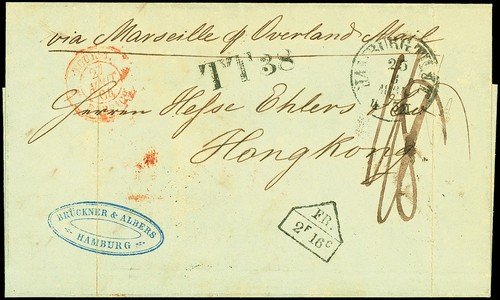 via Marseille p Overland Mail
TYT 38
HAMBURG
Herren Hesse Ehlers
Hongkong
BRÜCKNER & ALBERS
HAMBURG
FR.
2F 16C